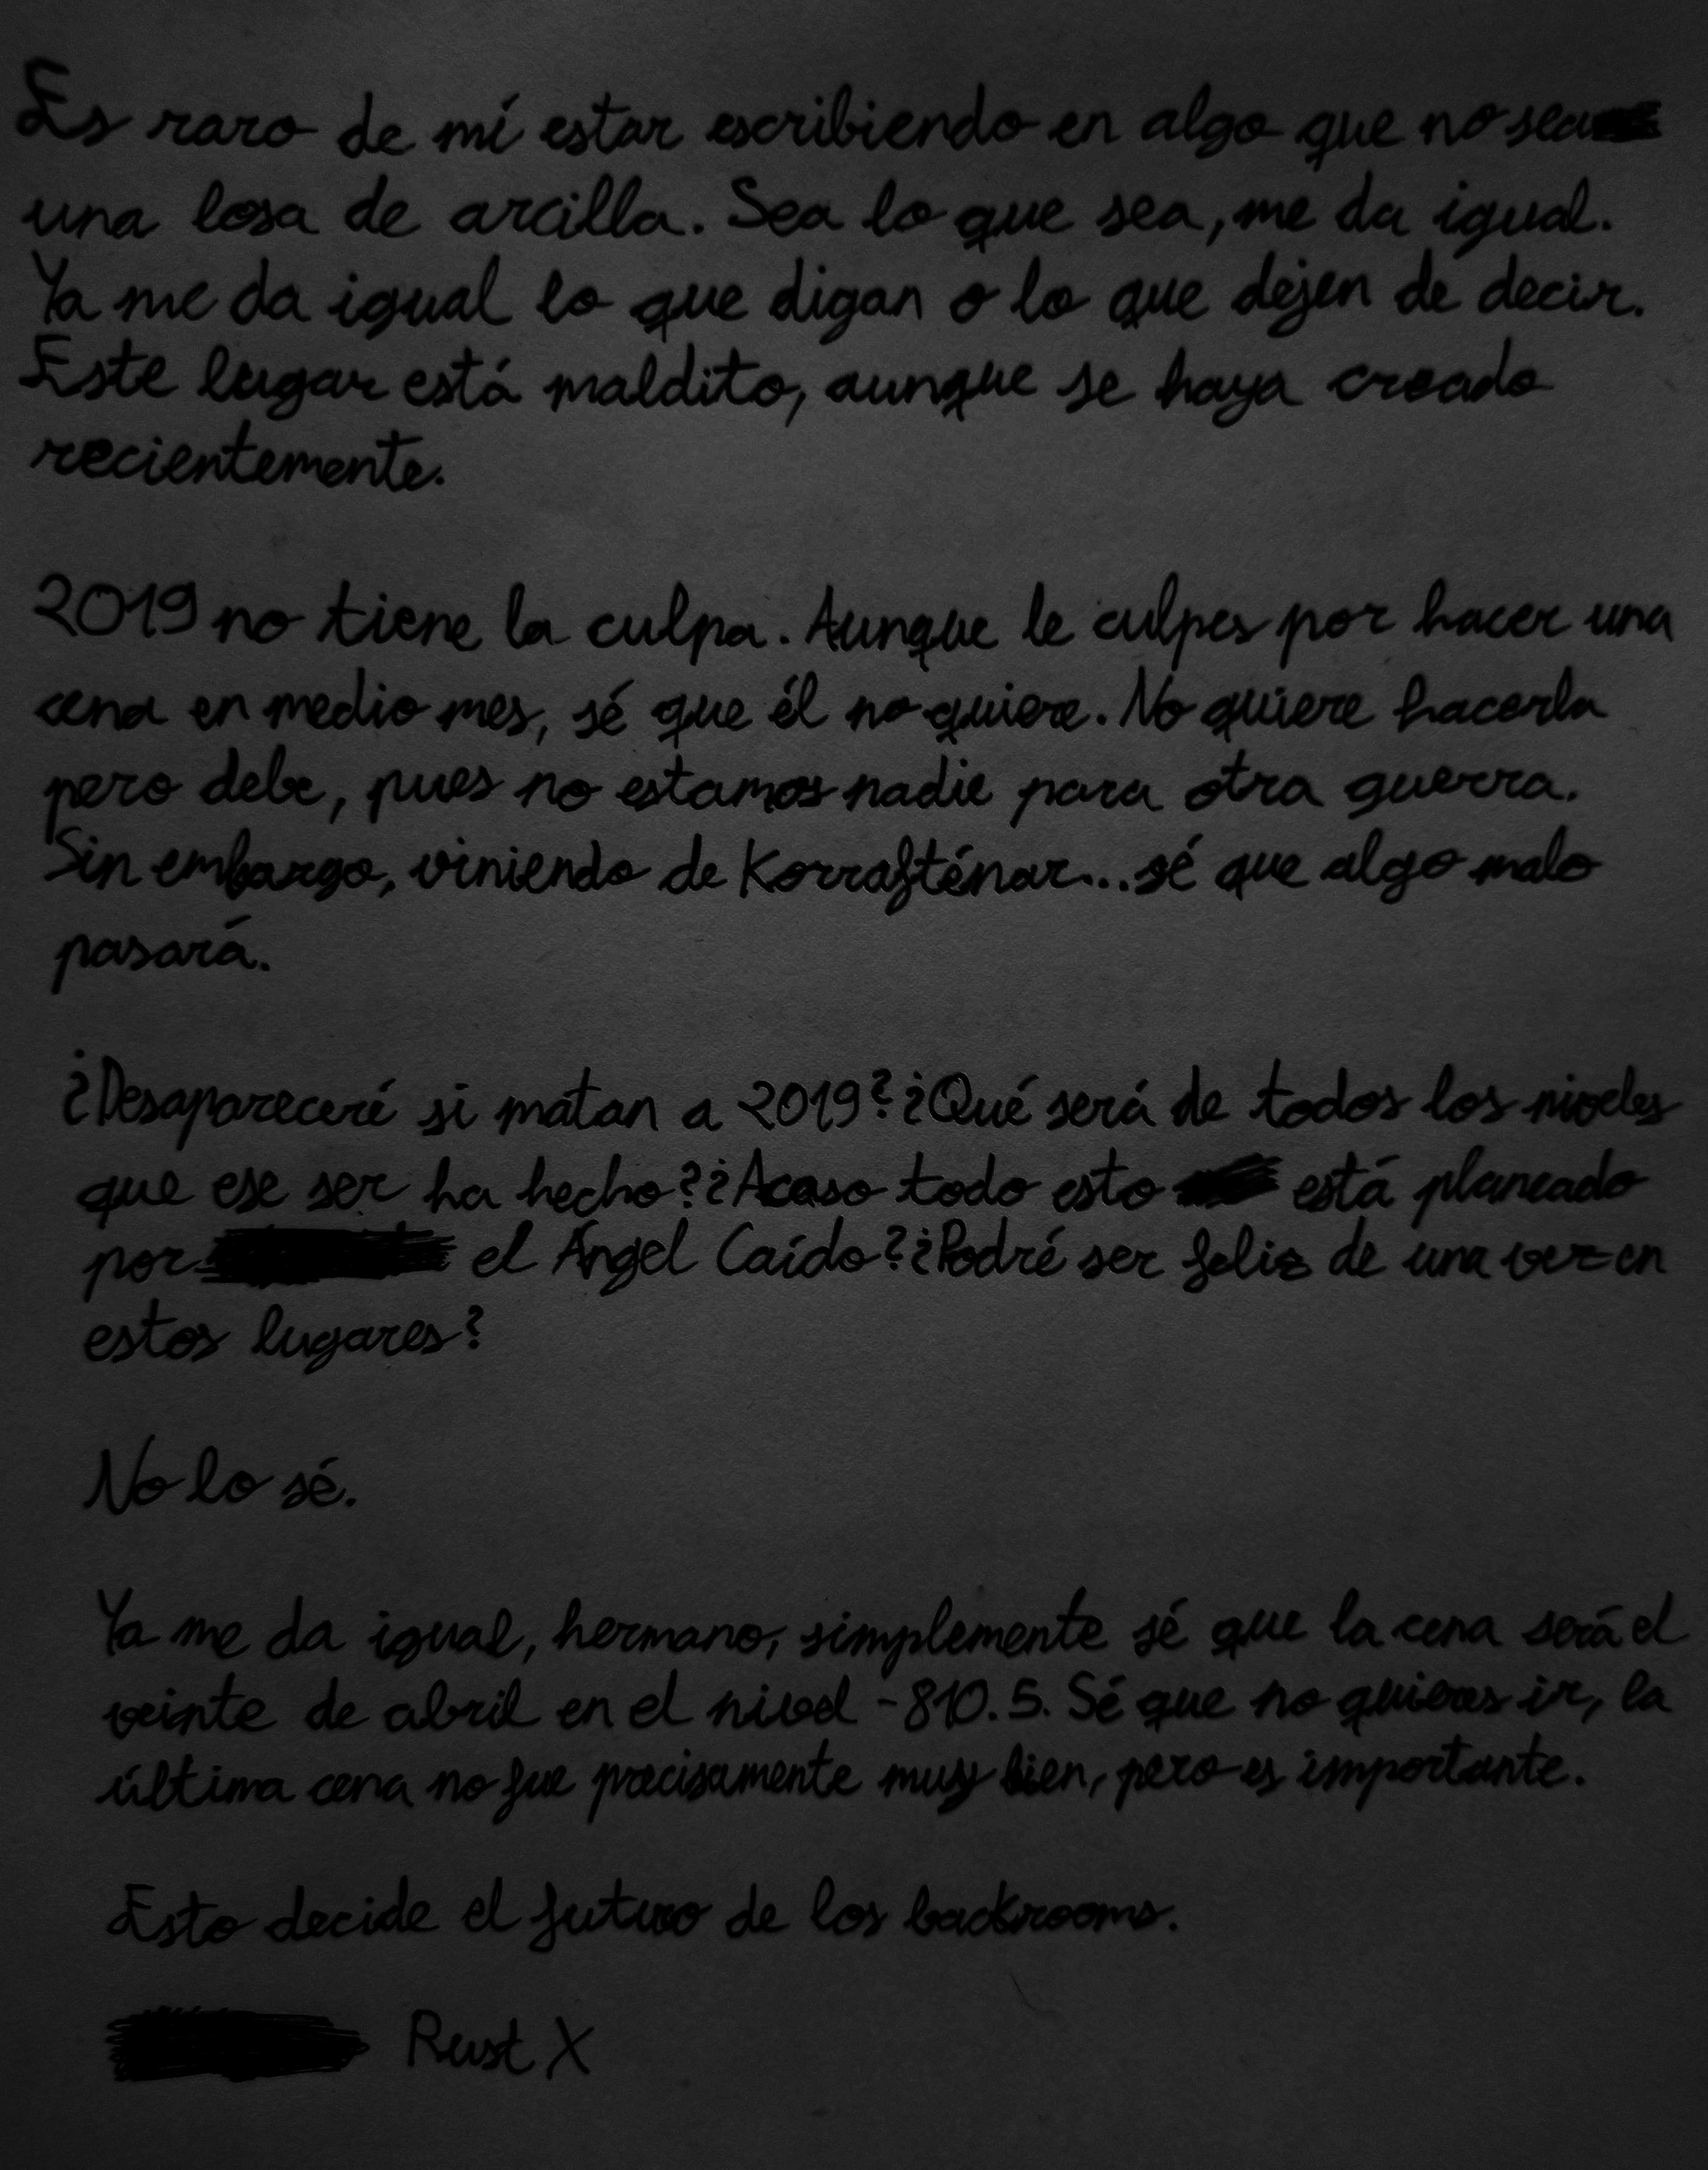 Es raro de mí estar escribiendo en algo que no sea
una losa de arcilla. Sea lo que sea, me da igual.
Ya me da igual lo que digan o lo que dejen de decir.
Este lugar está maldito, aunque se haya creado
recientemente.
2019 no tiene la culpa. Aunque le culpes por hacer una
cena en medio mes, sé que él no quiere. No quiere hacerla
pero debe, pues no estamos nadie para otra guerra.
Sin embargo, viniendo de Korrafténar... sé que algo malo
pasará.
¿Desapareceré si matan a 2019? ¿Qué será de todos los niveles
que ese ser ha hecho? ¿Acaso todo esto está planeado
por el Ángel Caído? ¿Podré ser feliz de una vez en
estos lugares?
No lo sé.
Ya me da igual, hermano, simplemente sé que la cena será el
veinte de abril en el nivel -810.5. Sé que no quieres ir, la
última cena no fue precisamente muy bien, pero es importante.
Esto decide el futuro de los backrooms.
Rust X